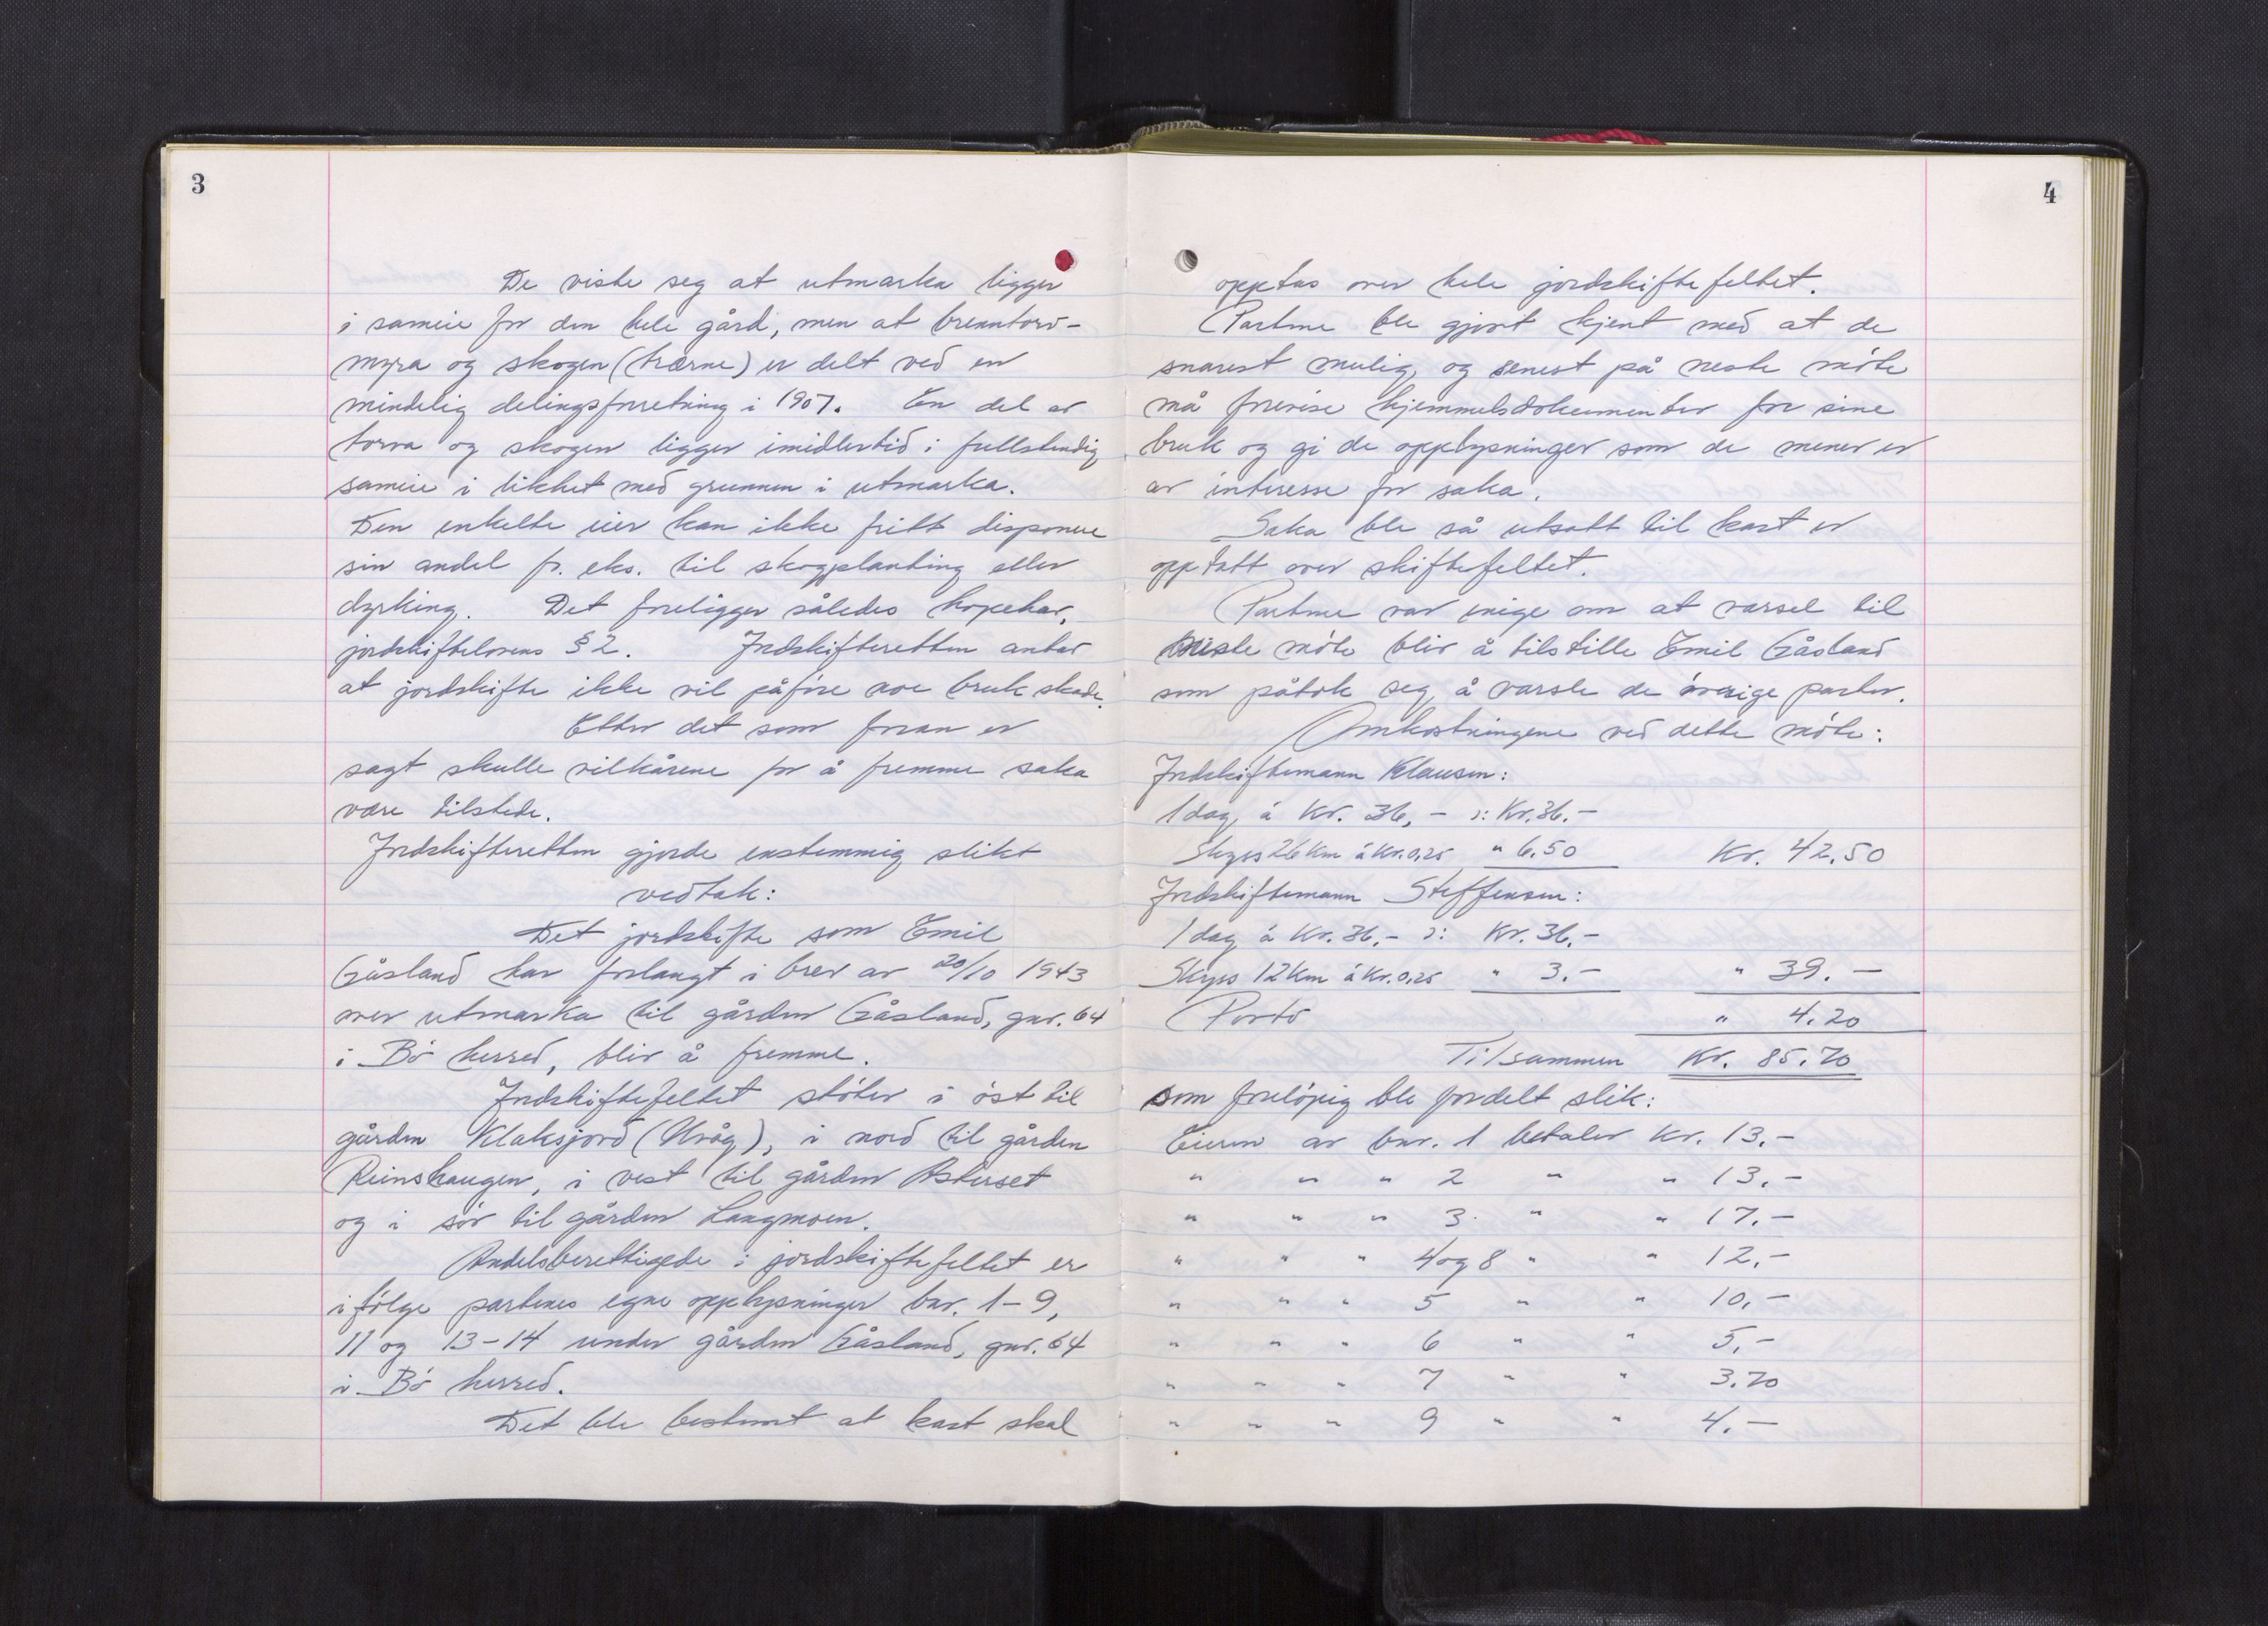 3
De viste seg at utmarka ligger
i sameie for den hele gård, men at brenntorv-
myra og skogen (trærne) er delt ved en
mindelig delingsforretning i 1907. En del av
torva og skogen ligger imidlertid i fullstendig
sameie i likhet med grunnen i utmarka.
Den enkelte eier kan ikke fritt disponere
sin andel f. eks. til skogplanting eller
dyrking. Det foreligger således hopehav,
jordskiftelovens § 2. Jordskifteretten antar
at jordskifte ikke vil påføre noe bruk skade.
Etter det som foran er
sagt skulle vilkårene for å fremme saka
være tilstede.
Jordskifteretten gjorde enstemmig slikt
vedtak:
Det jordskifte som Emil
Gåsland har forlangt i brev av 20/10 1943
over utmarka til gården Gåsland, gnr. 64
i Bö herred, blir å fremme.
Jordskiftefeltet stöter i öst til
gården Klaksjord (Kråg), i nord til gården
Reinshaugen, i vest til gården Asterset
og i sör til gården Langmoen.
Andelsberettigede i jordskiftefeltet er
i fölge partenes egne opplysninger bnr. 1-9,
11 og 13-14 under gården Gåsland, gnr. 64
i Bö herred.
Det ble bestemt at kart skal
4
opptas over hele jordskiftefeltet.
Partene ble gjort kjent med at de
snarest mulig, og senest på neste möte
må forevise hjemmelsdokumenter for sine
bruk og gi de opplysninger som de mener er
av interesse for saka.
Saka ble så utsatt til kart er
opptatt over skiftefeltet.
Partene var enige om at varsel til
neste möte blir å tilstille Emil Gåsland
som påtok seg å varsle de övrige parter.
Omkostningene ved dette möte:
Jordskiftemann Klausen:
1 dag á kr. 36,- ɔ: Kr. 36.-
Skyss 26 km á kr. 0,25 " 6.50 Kr. 42.50
Jordskiftemann Steffensen:
1 dag á kr. 36,- ɔ: Kr. 36.-
Skyss 12 km á kr. 0,25 " 3.- " 39.-
Porto " 4.20
Tilsammen Kr. 85.70
som forelöpig ble fordelt slik:
Eieren av bnr. 1 betaler kr. 13.-
" " " 2 " " 13.-
" " " 3 " " 17.-
" " " 4 og 8 " " 12.-
" " " 5 " " 10.-
" " " 6 " " 5.-
" " " 7 " " 3.70
" " " 9 " " 4.-